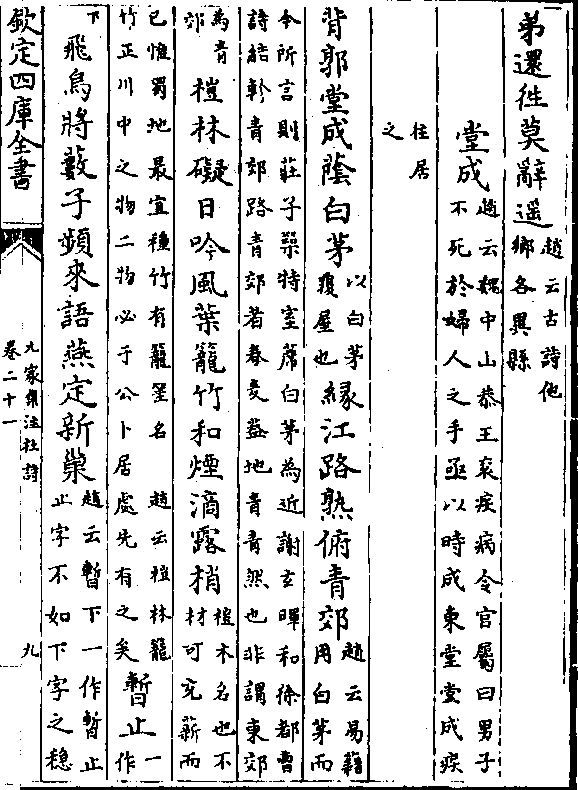 弟還徃莫辭遥
趙云古詩他
鄉各異縣
堂成
趙云魏中山恭王衮疾病令官屬曰男子
不死於婦人之手亟以時成東堂堂成疾
徃居
之
背郭堂成蔭白茅
以白茅
覆屋也
緣江路熟俯青郊
趙云易藉
用白茅而
今所言則莊子築特室席白茅為近謝玄暉和徐都曹
詩結軫青郊路青郊者春麦葢地青青然也非謂東郊
為青
郊
榿林礙日吟風葉籠竹和煙滴露梢
榿木名也不
材可充薪而
已惟蜀地最宜種竹有籠 名
趙云榿林籠
竹正川中之物二物必于公卜居處先有之矣
暫止
一作
下
飛烏將數子頻來語燕定新巢
趙云暫下一作暫止
止字不如下字之穩
欽定四庫全書
九家集注杜詩
卷二十一
九